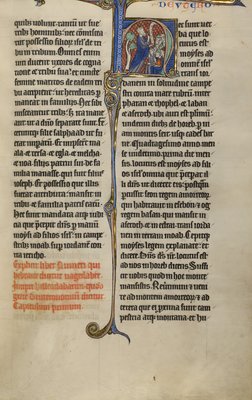 quibꝫ uolunt tantū ut sue
tribꝰ hominibꝫ: nec cōmiscea
tur possessio filioꝝ isrł de tri
bu in tribum. Omnes enim
uiri ducent uxores de cogna
tione et tribu sua: et cuncte
femine maritos de eadem tri
bu accipient: ut hereditas ꝑ
maneat in familiis. Nec sibi
misceantur tribus: sꝫ ita mane
ant ut a dño separate sunt. Fe
ceruntqꝫ filie salphaad ut fu
erat imperatū. Et nupserūt ma
ala. et tersa. et egla. et melcha
et noa. filiis patrui sui de fa
milia manasse. qui fuit filius
ioseph. Et possessio que illis
fuerat attributa: mansit in tri
bu et familia patris earū.
Hec sunt mandata atqꝫ iudi
cia que p̄cepit dñs ꝑ manū
moysi ad filios isrł: in campe
stribus moab suꝑ iordanē con
tra iericho.
Explicit liber Numeri qui
hebraice dicitur uagedaber.
Incipit helleadabarim. quod
grece Deuteronomium dicitur
Capitulum primum.
DEUTRO
Hec sunt uer
ba que lo
cutus est
moyses ad
omnē isrł
trans ior
danem in solitudine campe
stri contra mare rubrū: inter
pharan et thophel et laban
et aseroth. ubi auri est plurimū:
undecim diebꝫ de horeb. ꝑ ui
am montis seir: usqꝫ cades bar
ne. Quadragesimo anno men
se undecimo. prima die men
sis: locutus est moyses ad fili
os isrł omnia que p̄ceperat il
li dñs ut diceret eis: postquā
percussit seon regem amorreoꝝ.
qui habitauit in esebon: et og
regem basan. qui mansit in
aseroth. et in edrai trans iorda
nem in terra moab. Cepitqꝫ
moyses legem explanare. et di
cere. Dñs dš nr̄ locutus est
ad nos in horeb dicens. Suffi
cit uobis quod in hoc monte
mansistis. Reuertimini et ueni
te ad montem amorreoꝝ: et ad
cetera que ei proxima sunt cam
pestria atqꝫ montana. et hu